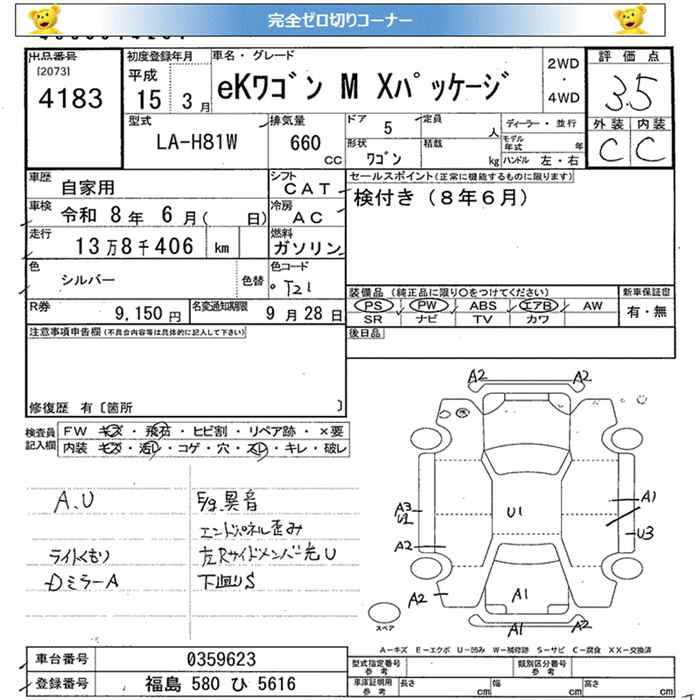 完全ゼロ切りコーナー
出品番号
[2073]
4183
初度登録年月
平成
15年 3月
車名・グレード
eKワゴン M Xパッケージ
2WD
・
4WD
評価点
3.5
外装 内装
C C
型式
LA-H81W
排気量
660
CC
ドア 5
定員 人
形状
ワゴン
積載 kg
ディーラー・並行
モデル年式 年
ハンドル 左・右
車歴
自家用
シフト
CAT
車検 令和 8年 6月( 日)
冷房
AC
走行 13万8千406 km
燃料
ガソリン
色
シルバー
色替
色コード
T21
R券 9,150円
名変通知期限
9月28日
セールスポイント(正常に機能するものに限ります)
検付き(8年6月)
装備品(純正品に限り〇をつけてください)
PS PW ABS エアB AW
SR ナビ TV カワ
新車保証書
有・無
後日品
注意事項申告欄(不具合内容等は具体的に記入して下さい)
修復歴 有〔箇所 〕
検査員記入欄
FW キズ・飛石・ヒビ割・リペア跡・×要
内装 キズ・汚レ・コゲ・穴・スレ・キレ・破レ
A.U
E/g異音
エンドパネル歪み
ライトくもり
左Rサイドメンバー先U
Dミラー A
下廻りS
A2 A2
A3
U2
A2
A2
U1
A1
U3
A1
A1
A2
スペア
A-キズ E-エクボ U-凹み W-補修跡 S-サビ C-腐食 XX-交換済
車台番号 0359623
登録番号 福島 580 ひ 5616
型式指定番号
参考
類別区分番号
参考
車庫証明用
参考
長さ cm
幅 cm
高さ cm